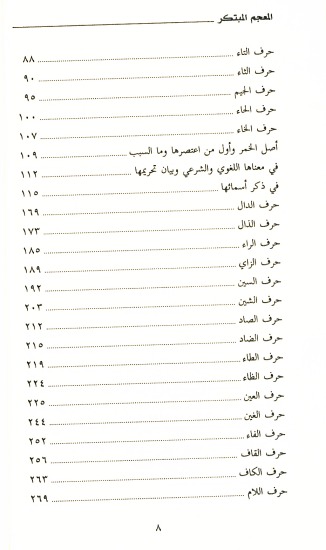 المعجم المبتكر
حرف التاء ٨٨
حرف الثاء ٩٠
حرف الجيم ٩٥
حرف الحاء ١٠٠
حرف الخاء ١٠٧
أصل الخمر وأول من اعتصرها وما السبب ١٠٩
في معناها اللغوي والشرعي وبيان تحريمها ١١٢
في ذكر أسمائها ١١٥
حرف الدال ١٦٩
حرف الذال ١٧٣
حرف الراء ١٨٥
حرف الزاي ١٨٩
حرف السين ١٩٢
حرف الشين ٢٠٣
حرف الصاد ٢١٢
حرف الضاد ٢١٥
حرف الطاء ٢١٩
حرف الظاء ٢٢٤
حرف العين ٢٢٥
حرف الغين ٢٤٤
حرف الفاء ٢٥٢
حرف القاف ٢٥٦
حرف الكاف ٢٦٣
حرف اللام ٢٦٩
٨